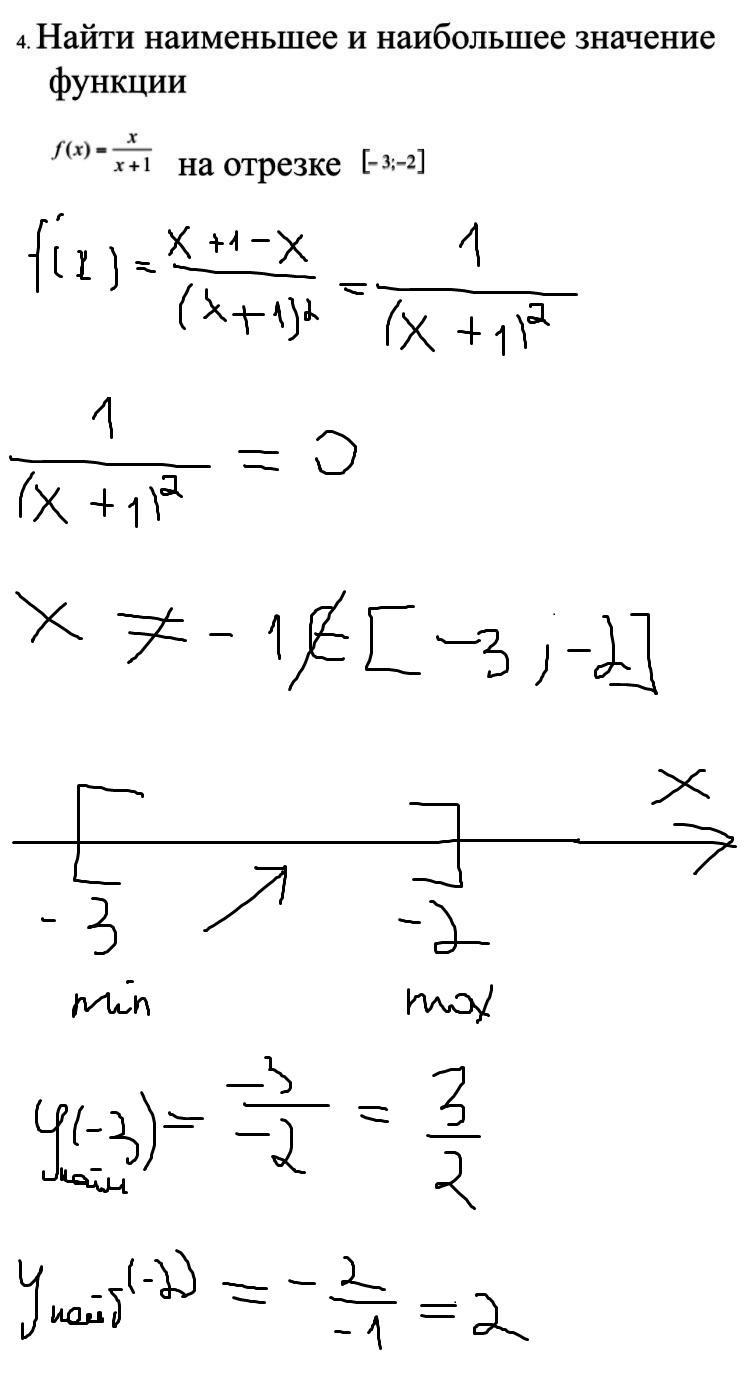 4. Найти наименьшее и наибольшее значение
функции
f(x) = x/(x+1) на отрезке [-3;-2]
f'(x) = (x+1-x)/(x+1)² = 1/(x+1)²
1/(x+1)² = 0
x ≠ -1 ∉ [-3; -2]
x
-3 -2
min max
y наим (-3) = -3/-2 = 3/2
y наиб (-2) = -2/-1 = 2